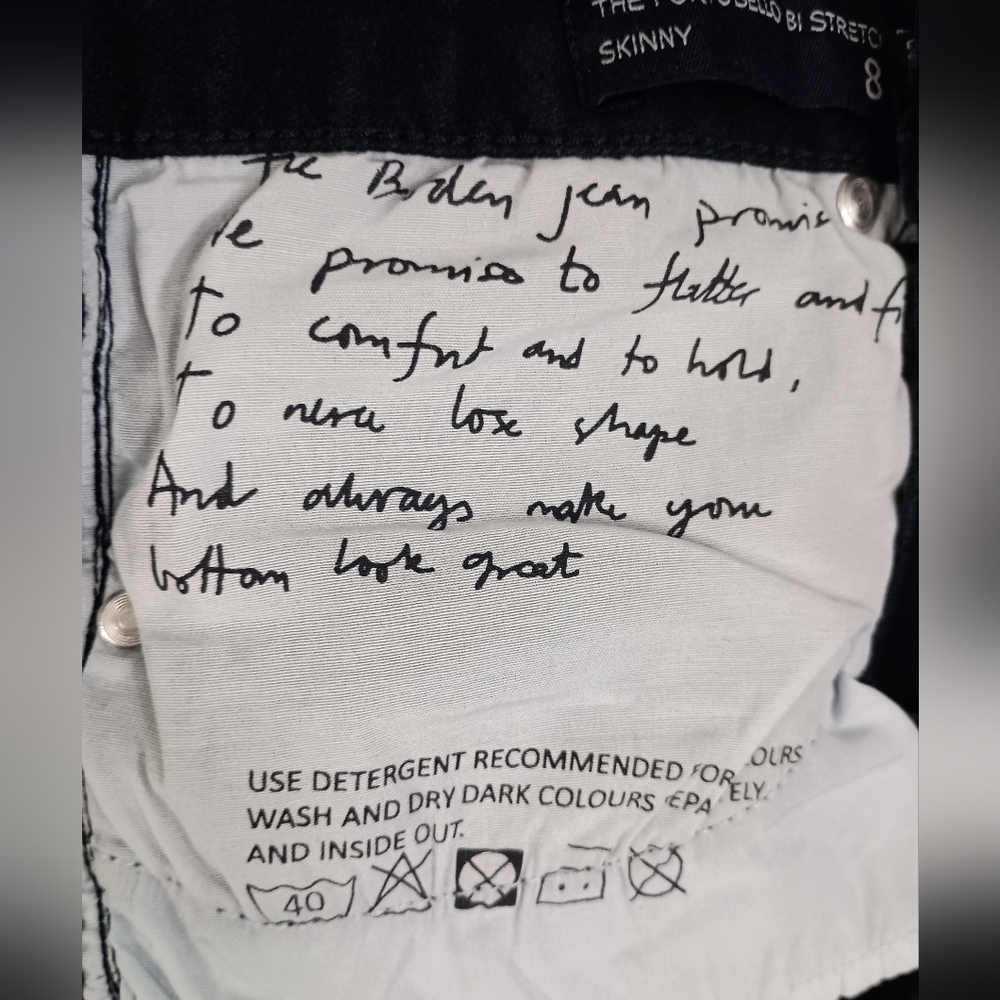 THE PORTOBELLO BI STRETC
SKINNY
8
The Boden jean promis
e promise to flatter and fi
To comfort and to hold,
To never lose shape
And always make your
bottom look great
USE DETERGENT RECOMMENDED FOR OLOURS
WASH AND DRY DARK COLOURS EPA ELY.
AND INSIDE OUT.
40